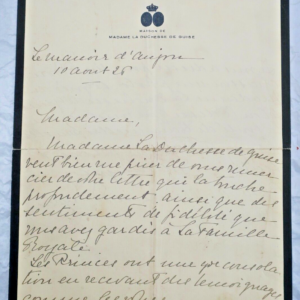 MAISON DE
MADAME LA DUCHESSE DE GUISE
Le Manoir d'Anjou
10 août 26
Madame,
Madame La Duchesse de Guise
veut bien me prier de vous remer
cier de votre lettre qui la touche
profondément, ainsi que des
sentiments de fidélité que
vous avez gardés à La Famille
Royale.
Les Princes ont une consolation
en recevant des témoignages
comme